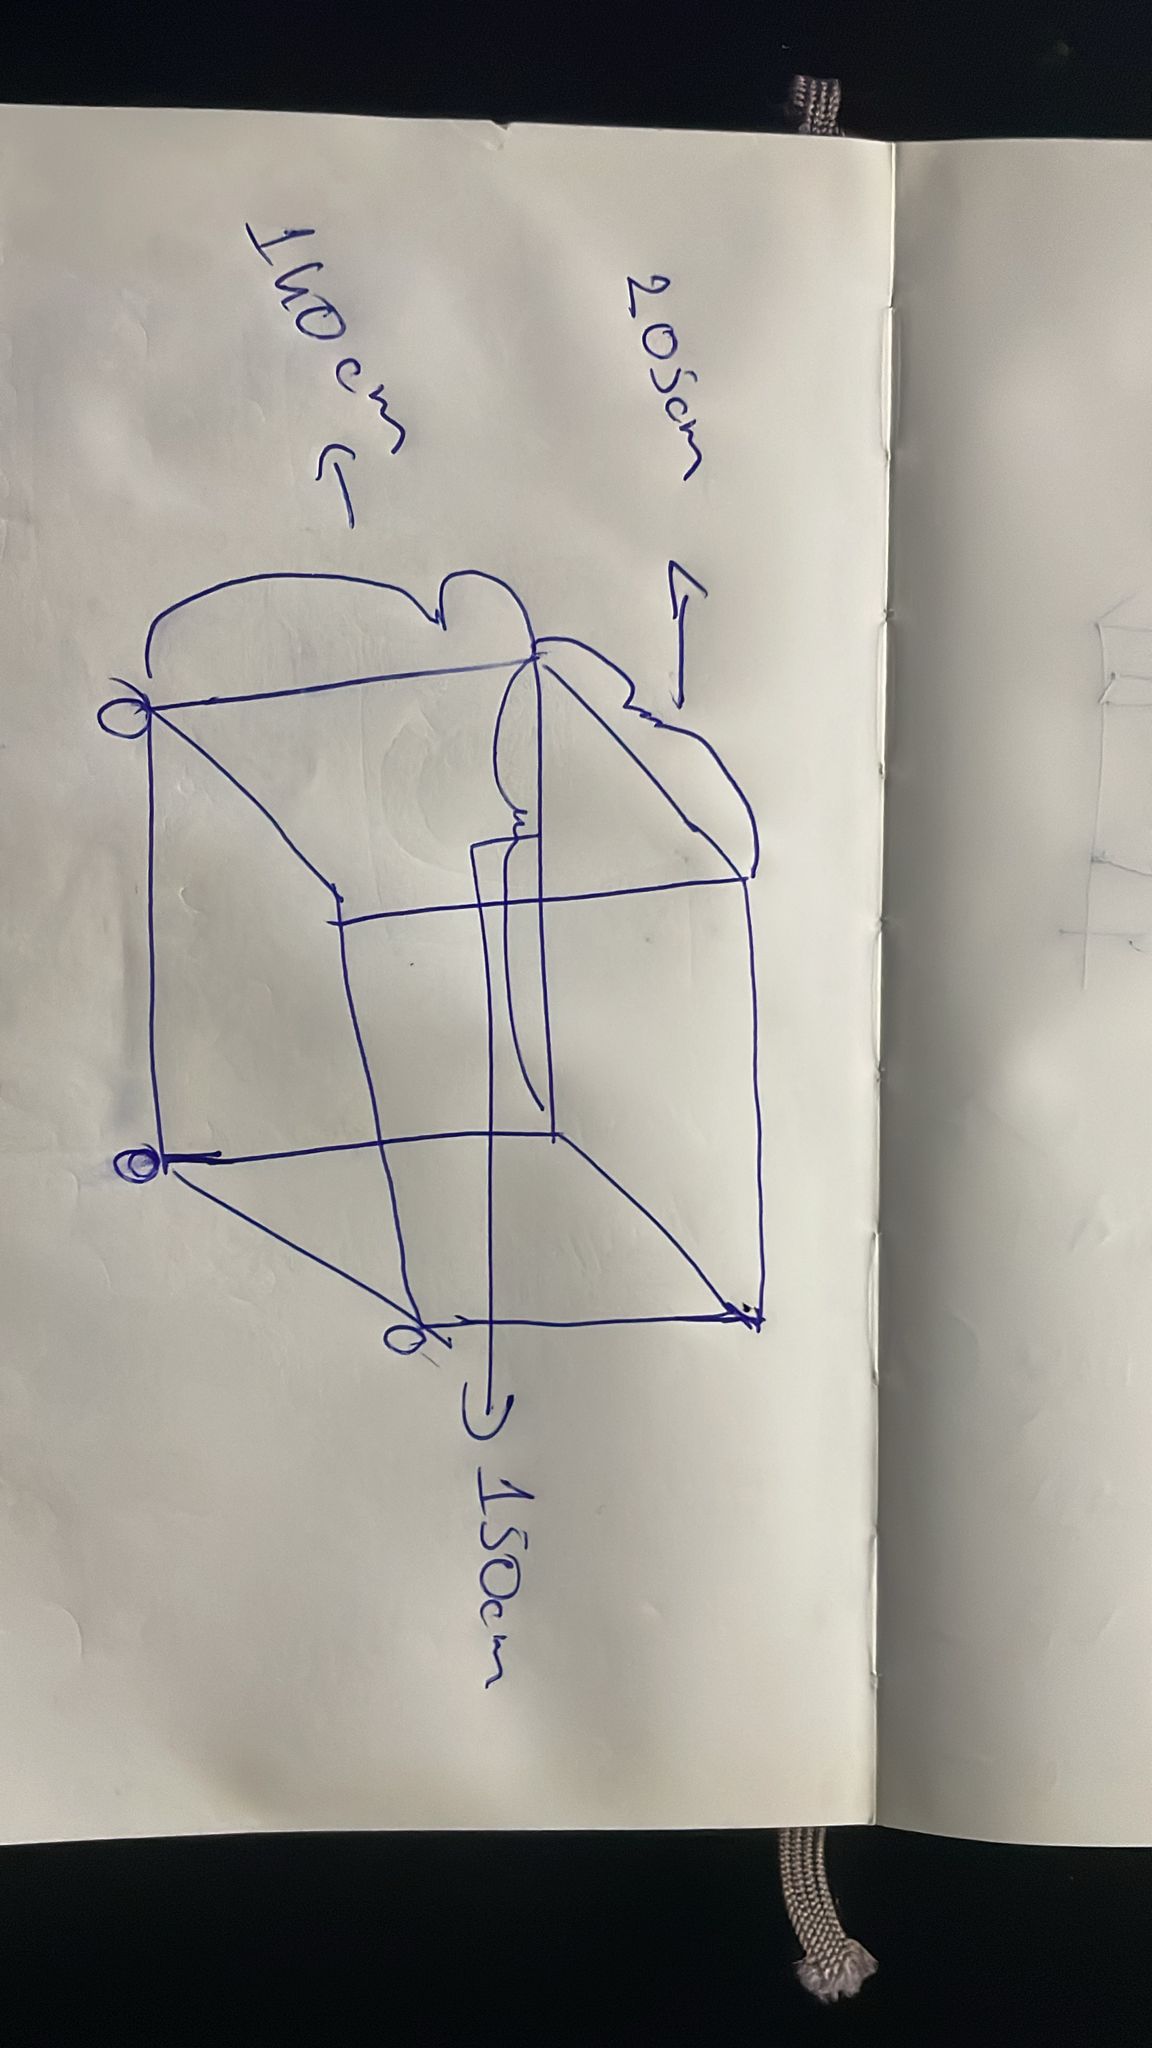 205cm
150cm
140cm